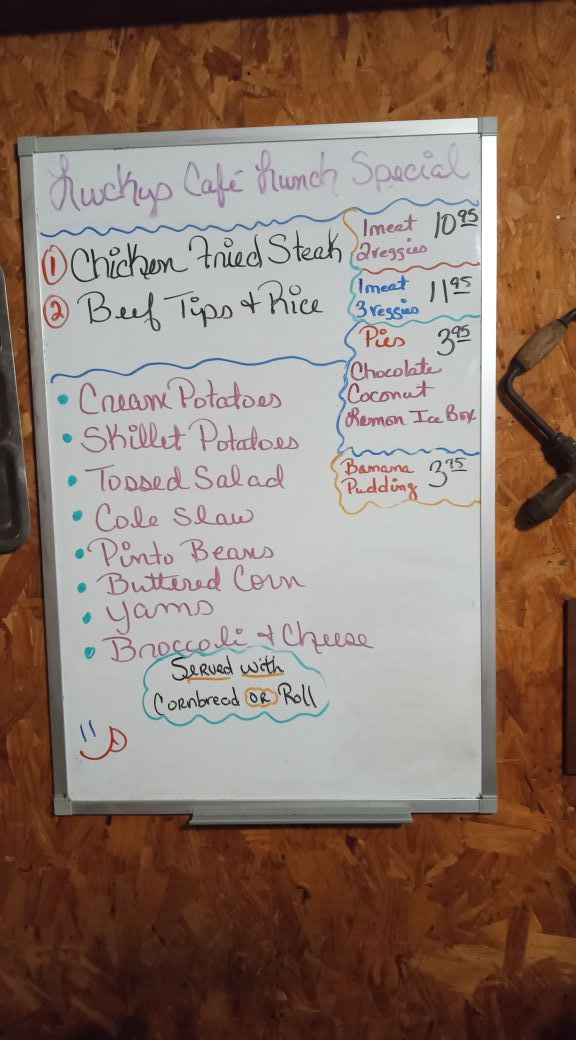 Luckys Café Lunch Special
1 Chicken Fried Steak
2 Beef Tips & Rice
1 meat 10 95
2 veggies
1 meat 11 95
3 veggies
Pies 3 95
Chocolate
Coconut
Lemon Ice Box
Banana 3 95
Pudding
• Cream Potatoes
• Skillet Potatoes
• Tossed Salad
• Cole Slaw
• Pinto Beans
• Buttered Corn
• Yams
• Broccoli & Cheese
Served with
Cornbread OR Roll